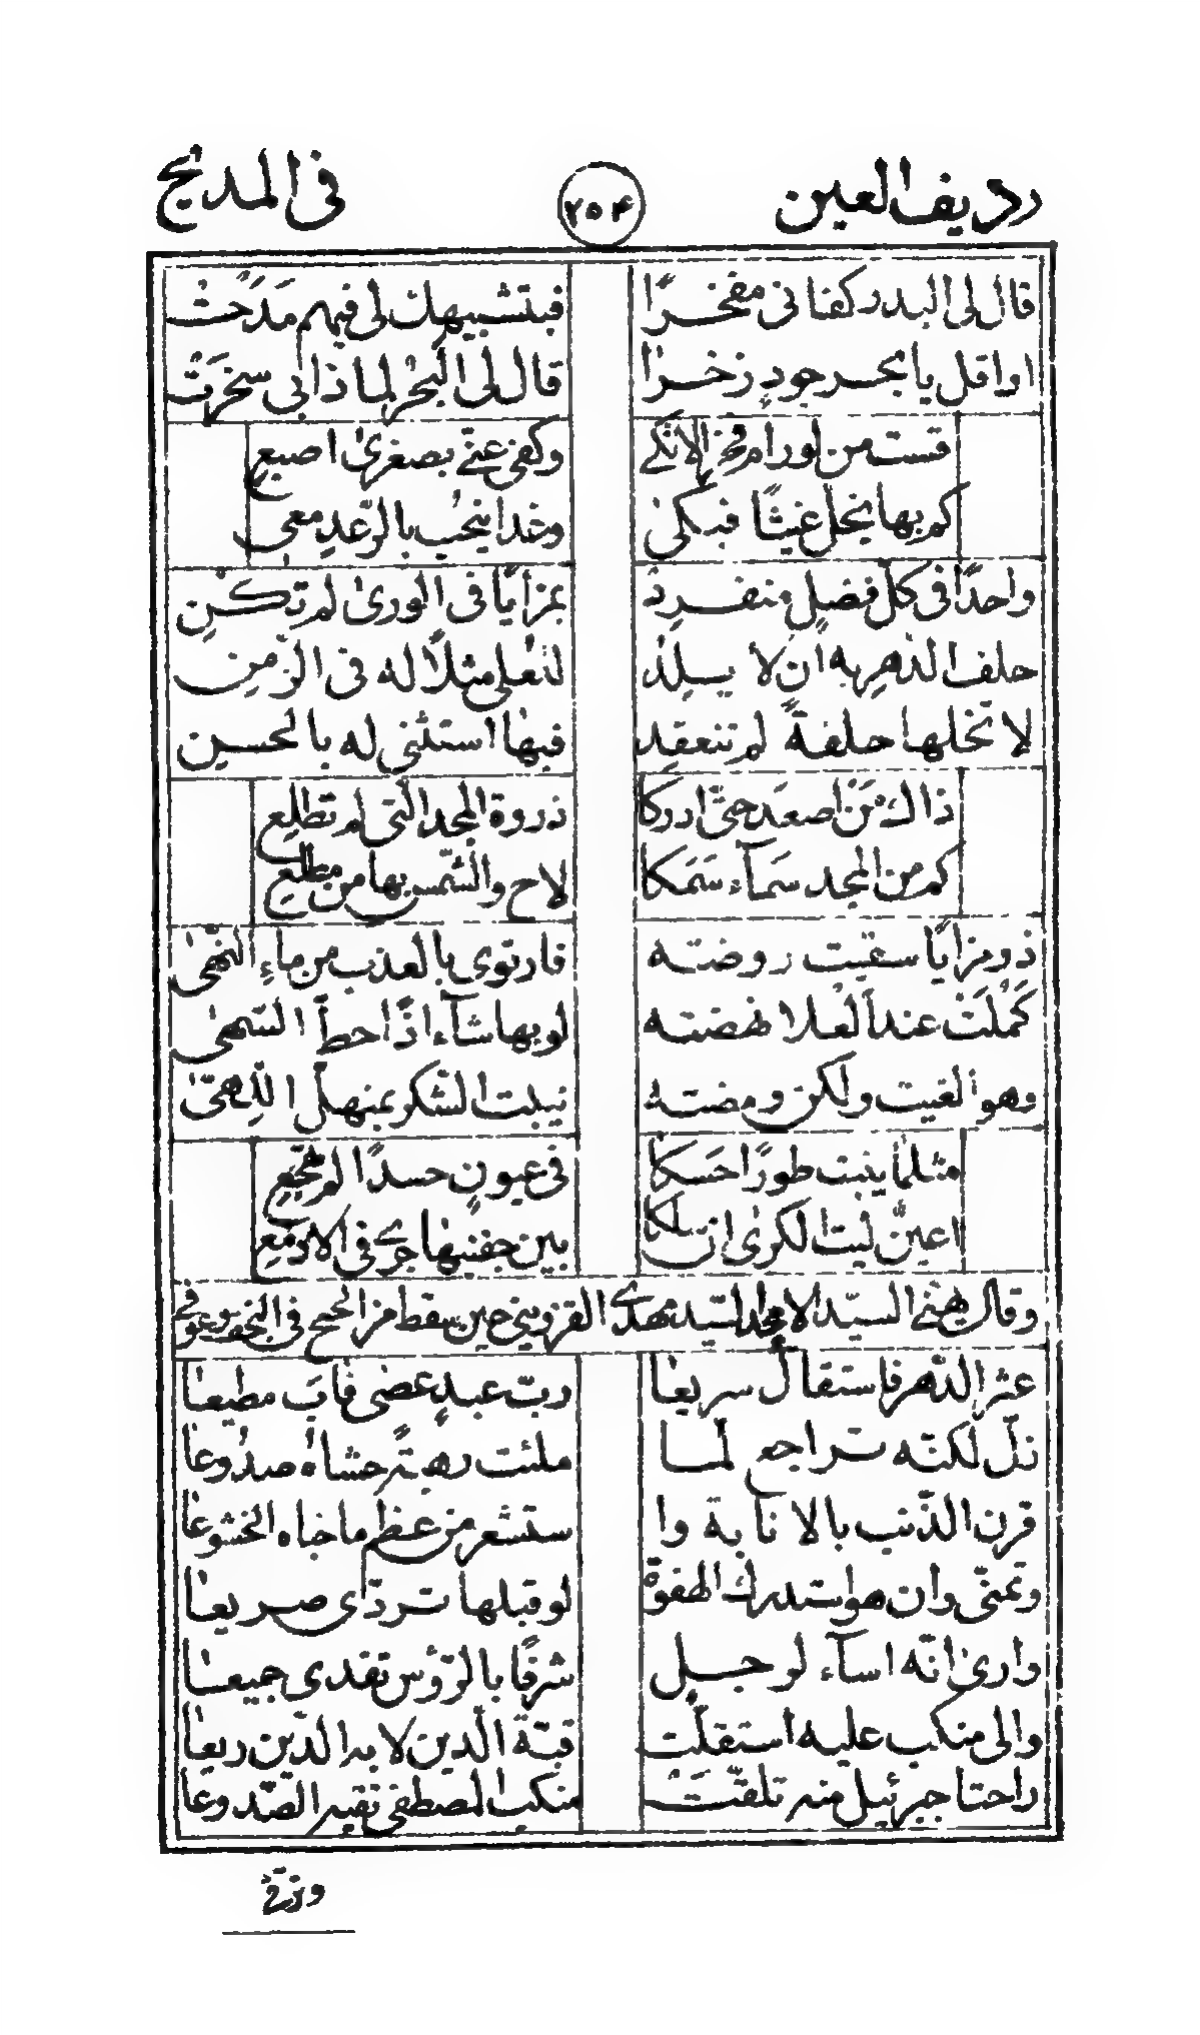 رديف العين ٢٥٤ في المديح
قال لي البدر كفاني مفخرًا فبتشبيهك لي فيهم مَدَحَتْ
او اقل يا بحر جودٍ زخرا قال لي البحْر لماذا بي سخرَتْ
قست من لو رام فخر الاتكى وكفى عنّي بصغرىٰ اصبعِ
كم بها بخل غيثًا فبكىٰ وغدا ينحُب بالرّعدِ معي
واحدًا في كل فضلٍ منفردِ بمزايًا في الورىٰ لم تكنِ
حلف الدّهر به ان لا يلد لنعلى مثلًا له في الزّمنِ
لا تخلها حلفةً لم تنعقد فبها استثنى له بالحسين
ذاك مَن اصعَد حتىٰ ادركا ذروة المجد الّتي لم تطلعِ
كم من المجد سمآء سَمَكا لاح والشّمس بها من مطلعِ
ذو مزايًا سقيت روضته فارتوى بالعذب من ماءِ النّهىٰ
كَمُلَتْ عند العُلا نهضته لو بها شآء اذًا حطّ السّهىٰ
وهو الغيت ولكن ومضته نيبت الشّكر بمنهلّ اللّهىٰ
مثلما ينبت طورًا حَسَكا في عيونٍ حسدًا لم تهجعِ
اعينٌ ليت الكرىٰ ان سلكا بين جفنيها جرى في الادمعِ
وقال يهنّئ السيّد الامجد السّيد مهدي القزويني حين سقط من الحج في النجف وعوفي
عثر الدّهر فاستقال سريعا ربّ عبدٍ عصىٰ فآبَ مطيعا
زلّ لكنّه تراجع لمّا ملئت رهبةً حشاهُ صدُوعا
قرن الذّنب بالانابة وا ستشعر من عظم ما جناه الخشوعا
وتمنّى وان هو استدرك الهفوة لو قبلها تردّى صريعا
وارىٰ انّه اسآء لو جبل شرفًا بالرّؤس تفدى جميعا
والى منكب عليه استقلّت قبّة الدّين لا بدا الدّين ريعا
راحتا جبرئيل منه تلقّتَ منكب المصطفى نقيه الصّدوعا
وترقّ